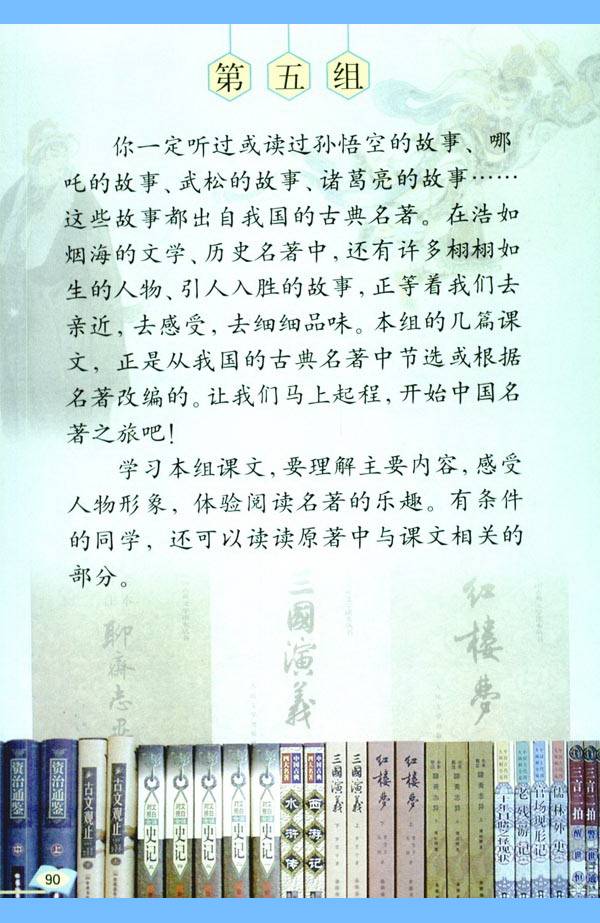 第五组
你一定听过或读过孙悟空的故事、哪
吒的故事、武松的故事、诸葛亮的故事……
这些故事都出自我国的古典名著。在浩如
烟海的文学、历史名著中，还有许多栩栩如
生的人物、引人入胜的故事，正等着我们去
亲近，去感受，去细细品味。本组的几篇课
文，正是从我国的古典名著中节选或根据
名著改编的。让我们马上起程，开始中国名
著之旅吧！
学习本组课文，要理解主要内容，感受
人物形象，体验阅读名著的乐趣。有条件
的同学，还可以读读原著中与课文相关的
部分。
聊齋志
三國演義
紅樓夢
资治通鉴
中
资治通鉴
上
古文观止
古文观止
史记
史记
史记
史记
史记
四大名著
中国古典
水浒传
四大名著
中国古典
西游记
三國演義
三國演義
紅樓夢
紅樓夢
二十年目睹之怪现状
老残游记
官场现形记
儒林外史
三言二拍
醒世恒
三言二拍
警世通
90